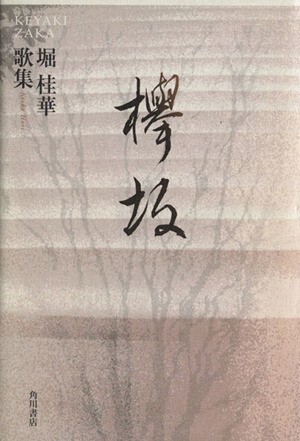 KEYAKI
ZAKA
堀 桂華
歌集
欅坂
角川書店